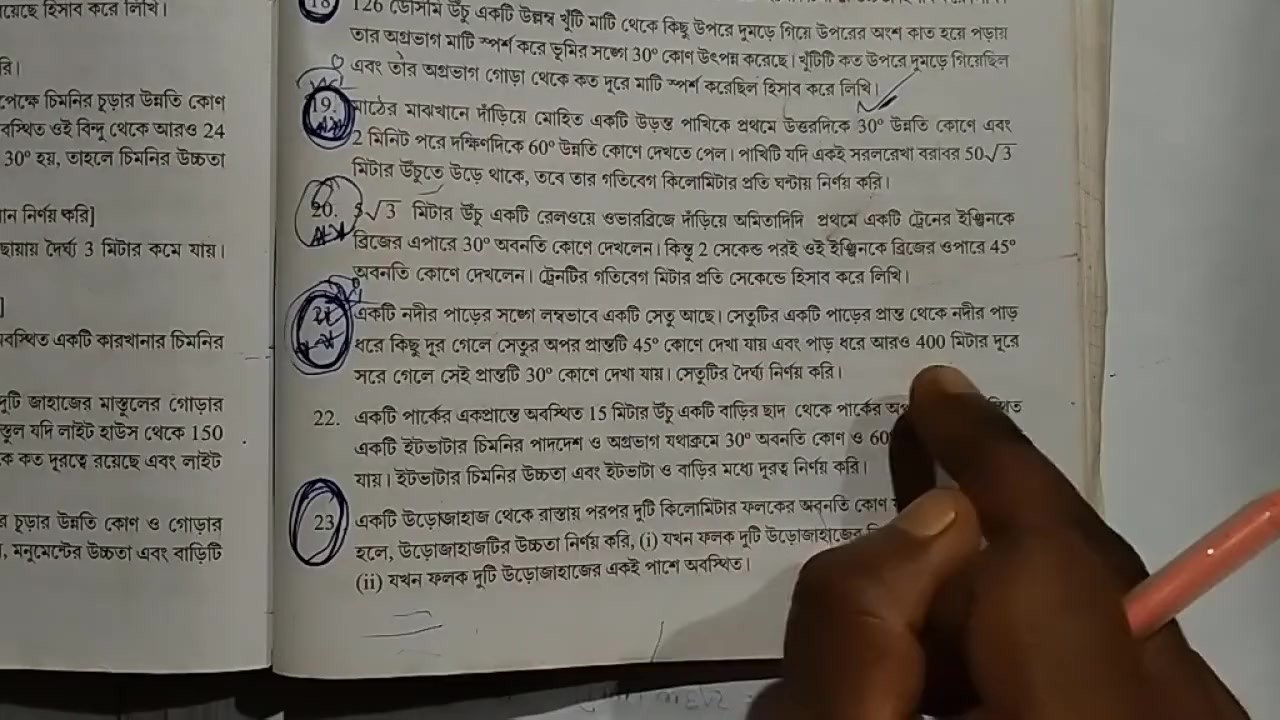 য়েছে হিসাব করে লিখি।
রি।
পেক্ষে চিমনির চূড়ার উন্নতি কোণ
বস্থিত ওই বিন্দু থেকে আরও 24
30° হয়, তাহলে চিমনির উচ্চতা
ান নির্ণয় করি]
ছায়ার দৈর্ঘ্য 3 মিটার কমে যায়।
]
বস্থিত একটি কারখানার চিমনির
দুটি জাহাজের মাস্তুলের গোড়ার
স্তুল যদি লাইট হাউস থেকে 150
কে কত দূরত্বে রয়েছে এবং লাইট
র চূড়ার উন্নতি কোণ ও গোড়ার
, মনুমেন্টের উচ্চতা এবং বাড়িটি
18. 126 ডেসিমি উঁচু একটি উল্লম্ব খুঁটি মাটি থেকে কিছু উপরে দুমড়ে গিয়ে উপরের অংশ কাত হয়ে পড়ায়
তার অগ্রভাগ মাটি স্পর্শ করে ভূমির সঙ্গে 30° কোণ উৎপন্ন করেছে। খুঁটিটি কত উপরে দুমড়ে গিয়েছিল
এবং তার অগ্রভাগ গোড়া থেকে কত দূরে মাটি স্পর্শ করেছিল হিসাব করে লিখি।
19. মাঠের মাঝখানে দাঁড়িয়ে মোহিত একটি উড়ন্ত পাখিকে প্রথমে উত্তরদিকে 30° উন্নতি কোণে এবং
2 মিনিট পরে দক্ষিণদিকে 60° উন্নতি কোণে দেখতে পেল। পাখিটি যদি একই সরলরেখা বরাবর 50√3
মিটার উঁচুতে উড়ে থাকে, তবে তার গতিবেগ কিলোমিটার প্রতি ঘণ্টায় নির্ণয় করি।
20. 5√3 মিটার উঁচু একটি রেলওয়ে ওভারব্রিজে দাঁড়িয়ে অমিতাদিদি প্রথমে একটি ট্রেনের ইঞ্জিনকে
ব্রিজের এপারে 30° অবনতি কোণে দেখলেন। কিন্তু 2 সেকেন্ড পরই ওই ইঞ্জিনকে ব্রিজের ওপারে 45°
অবনতি কোণে দেখলেন। ট্রেনটির গতিবেগ মিটার প্রতি সেকেন্ডে হিসাব করে লিখি।
21. একটি নদীর পাড়ের সঙ্গে লম্বভাবে একটি সেতু আছে। সেতুটির একটি পাড়ের প্রান্ত থেকে নদীর পাড়
ধরে কিছু দূর গেলে সেতুর অপর প্রান্তটি 45° কোণে দেখা যায় এবং পাড় ধরে আরও 400 মিটার দূরে
সরে গেলে সেই প্রান্তটি 30° কোণে দেখা যায়। সেতুটির দৈর্ঘ্য নির্ণয় করি।
22. একটি পার্কের একপ্রান্তে অবস্থিত 15 মিটার উঁচু একটি বাড়ির ছাদ থেকে পার্কের
একটি ইটভাটার চিমনির পাদদেশ ও অগ্রভাগ যথাক্রমে 30° অবনতি কোণ ও 60
যায়। ইটভাটার চিমনির উচ্চতা এবং ইটভাটা ও বাড়ির মধ্যে দূরত্ব নির্ণয় করি।
23 একটি উড়োজাহাজ থেকে রাস্তায় পরপর দুটি কিলোমিটার ফলকের অবনতি কোণ
হলে, উড়োজাহাজটির উচ্চতা নির্ণয় করি, (i) যখন ফলক দুটি উড়োজাহাজের
(ii) যখন ফলক দুটি উড়োজাহাজের একই পাশে অবস্থিত।